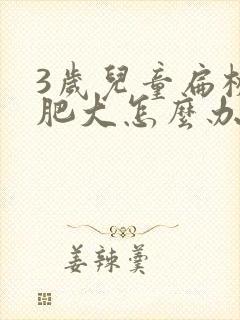 3歲兒童扁桃
肥大怎麼办
姜辣羹